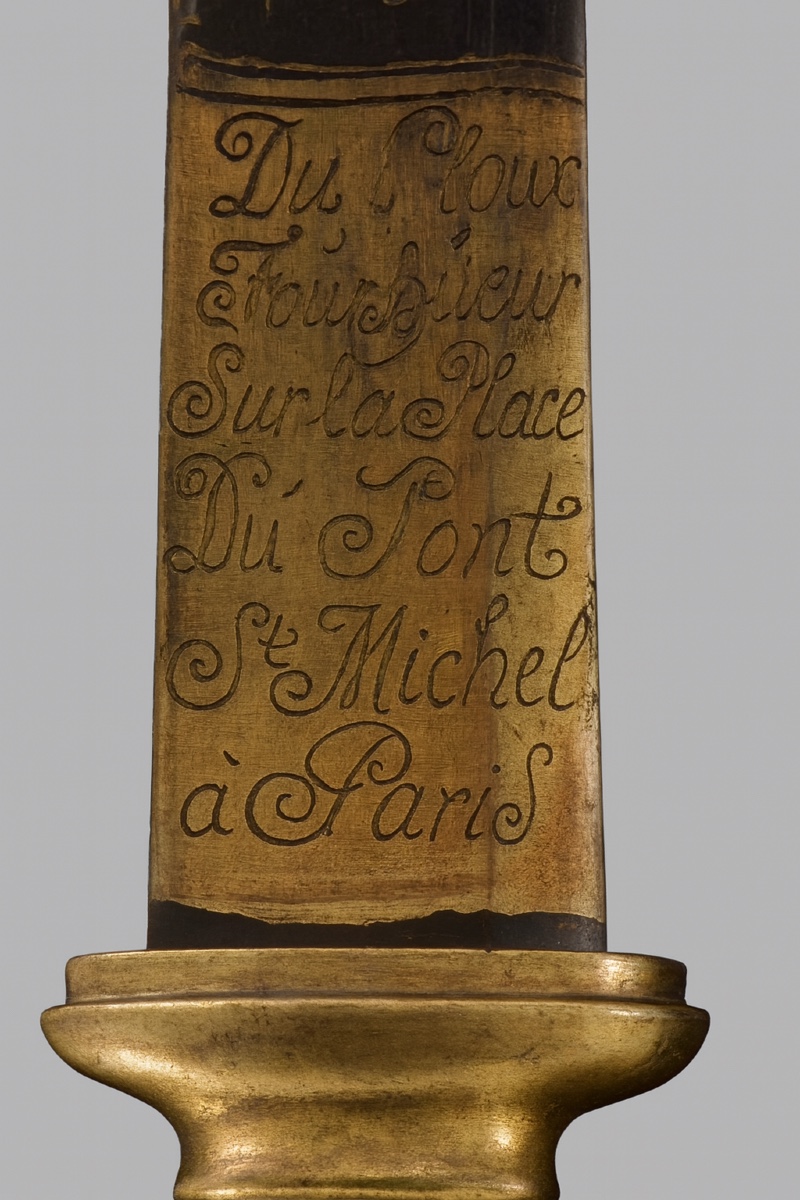 Du Ploux
Fourbúeur
Sur la Place
Dú Pont
St Michel
à Paris